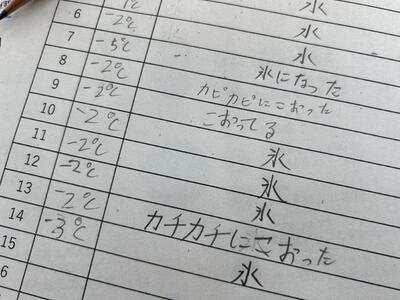 氷
1℃ 氷
6 -2℃ 氷
7 -5℃ 氷になった
8 -2℃ カピカピにこおった
9 -2℃ こおってる
10 -2℃ 氷
11 -2℃ 氷
12 -2℃ 氷
13 -2℃ カチカチにこおった
14 -3℃ 氷
15
6